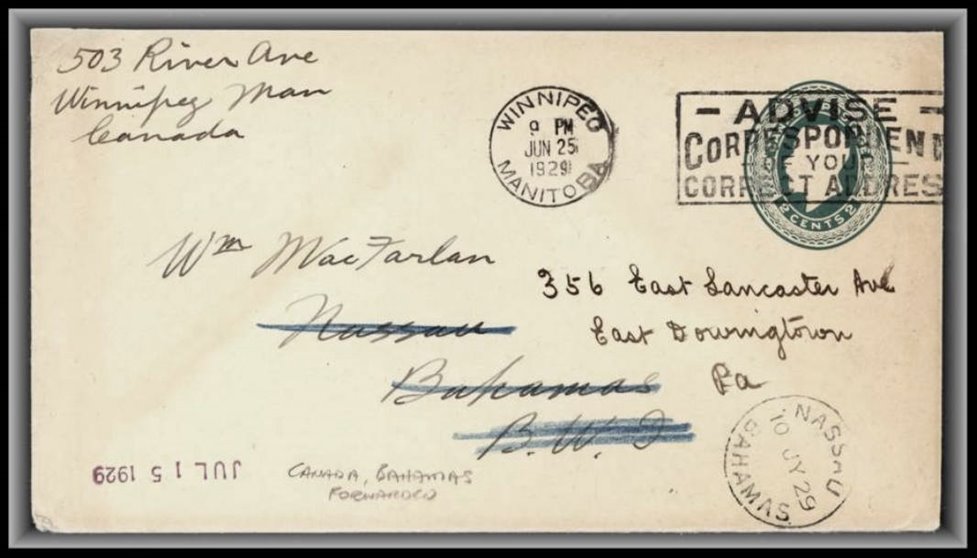 503 River Ave
Winnipeg Man
Canada
WINNIPEG
9 PM
JUN 25
1929
MANITOBA
- ADVISE -
CORRESPONDENT
OF YOUR
CORRECT ADDRESS
2 CENTS 2
Wm MacFarlan
Nassau
Bahamas
B.W.I
356 East Lancaster Ave
East Downingtown
Pa
NASSAU
10 JY 29
BAHAMAS
JUL 15 1929
CANADA, BAHAMAS
FORWARDED